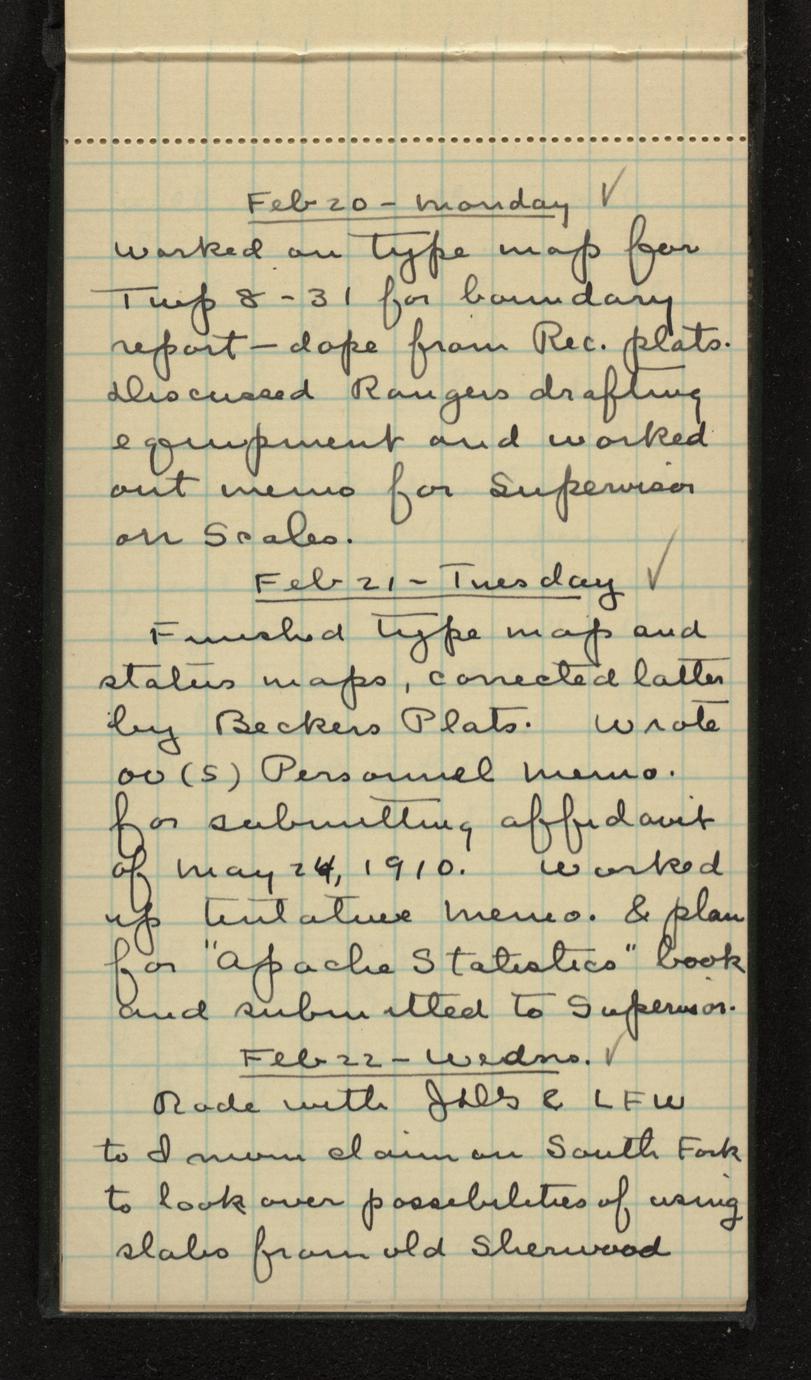 Feb 20 - Monday ✓
Worked on type map for
Twp 8 - 31 for boundary
report - dope from Rec. plats.
Discussed Rangers drafting
equipment and worked
out memo for Supervisor
on Scales.
Feb 21 - Tuesday ✓
Finished type map and
status maps, corrected latter
by Beckers Plats. Wrote
oo (S) Personnel memo.
for submitting affidavit
of May 24, 1910. Worked
up tentative memo. & plan
for "Apache Statistics" book
and submitted to Supervisor.
Feb 22 - Wedns. ✓
Rode with & LFW
to claim on South Fork
to look over possibilities of using
slabs from old Sherwood